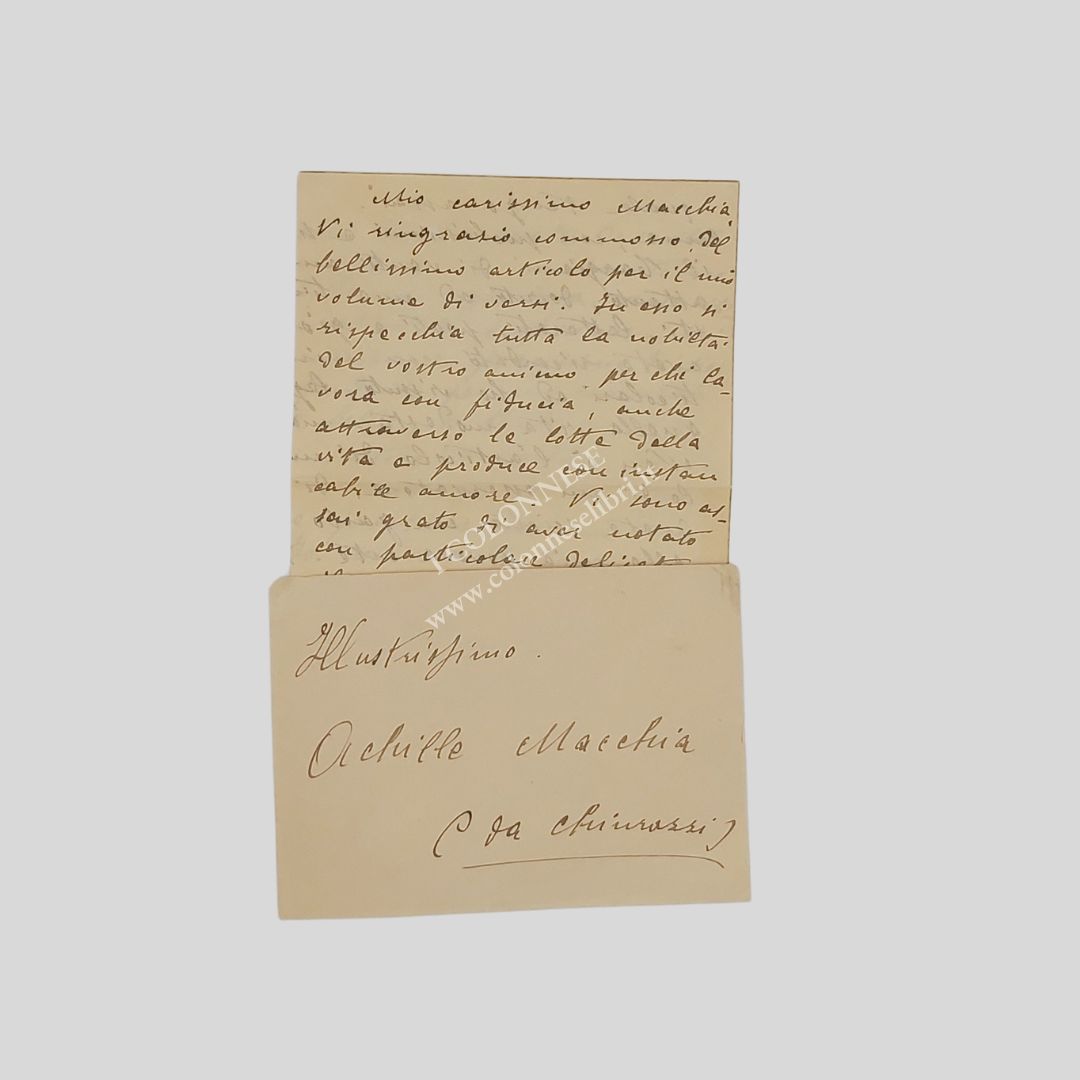 Mio carissimo Macchia,
Vi ringrazio commosso, del
bellissimo articolo per il mio
volume di versi. In esso si
rispecchia tutta la nobiltà
del vostro animo per chi la-
vora con fiducia, anche
attraverso le lotte della
vita e produce con instan
cabile amore. Vi sono as-
sai grato di aver notato
con particolare
I COLONNESE
www.colonneselibri.it
Illustrissimo.
Achille Macchia
(da Chiurazzi)